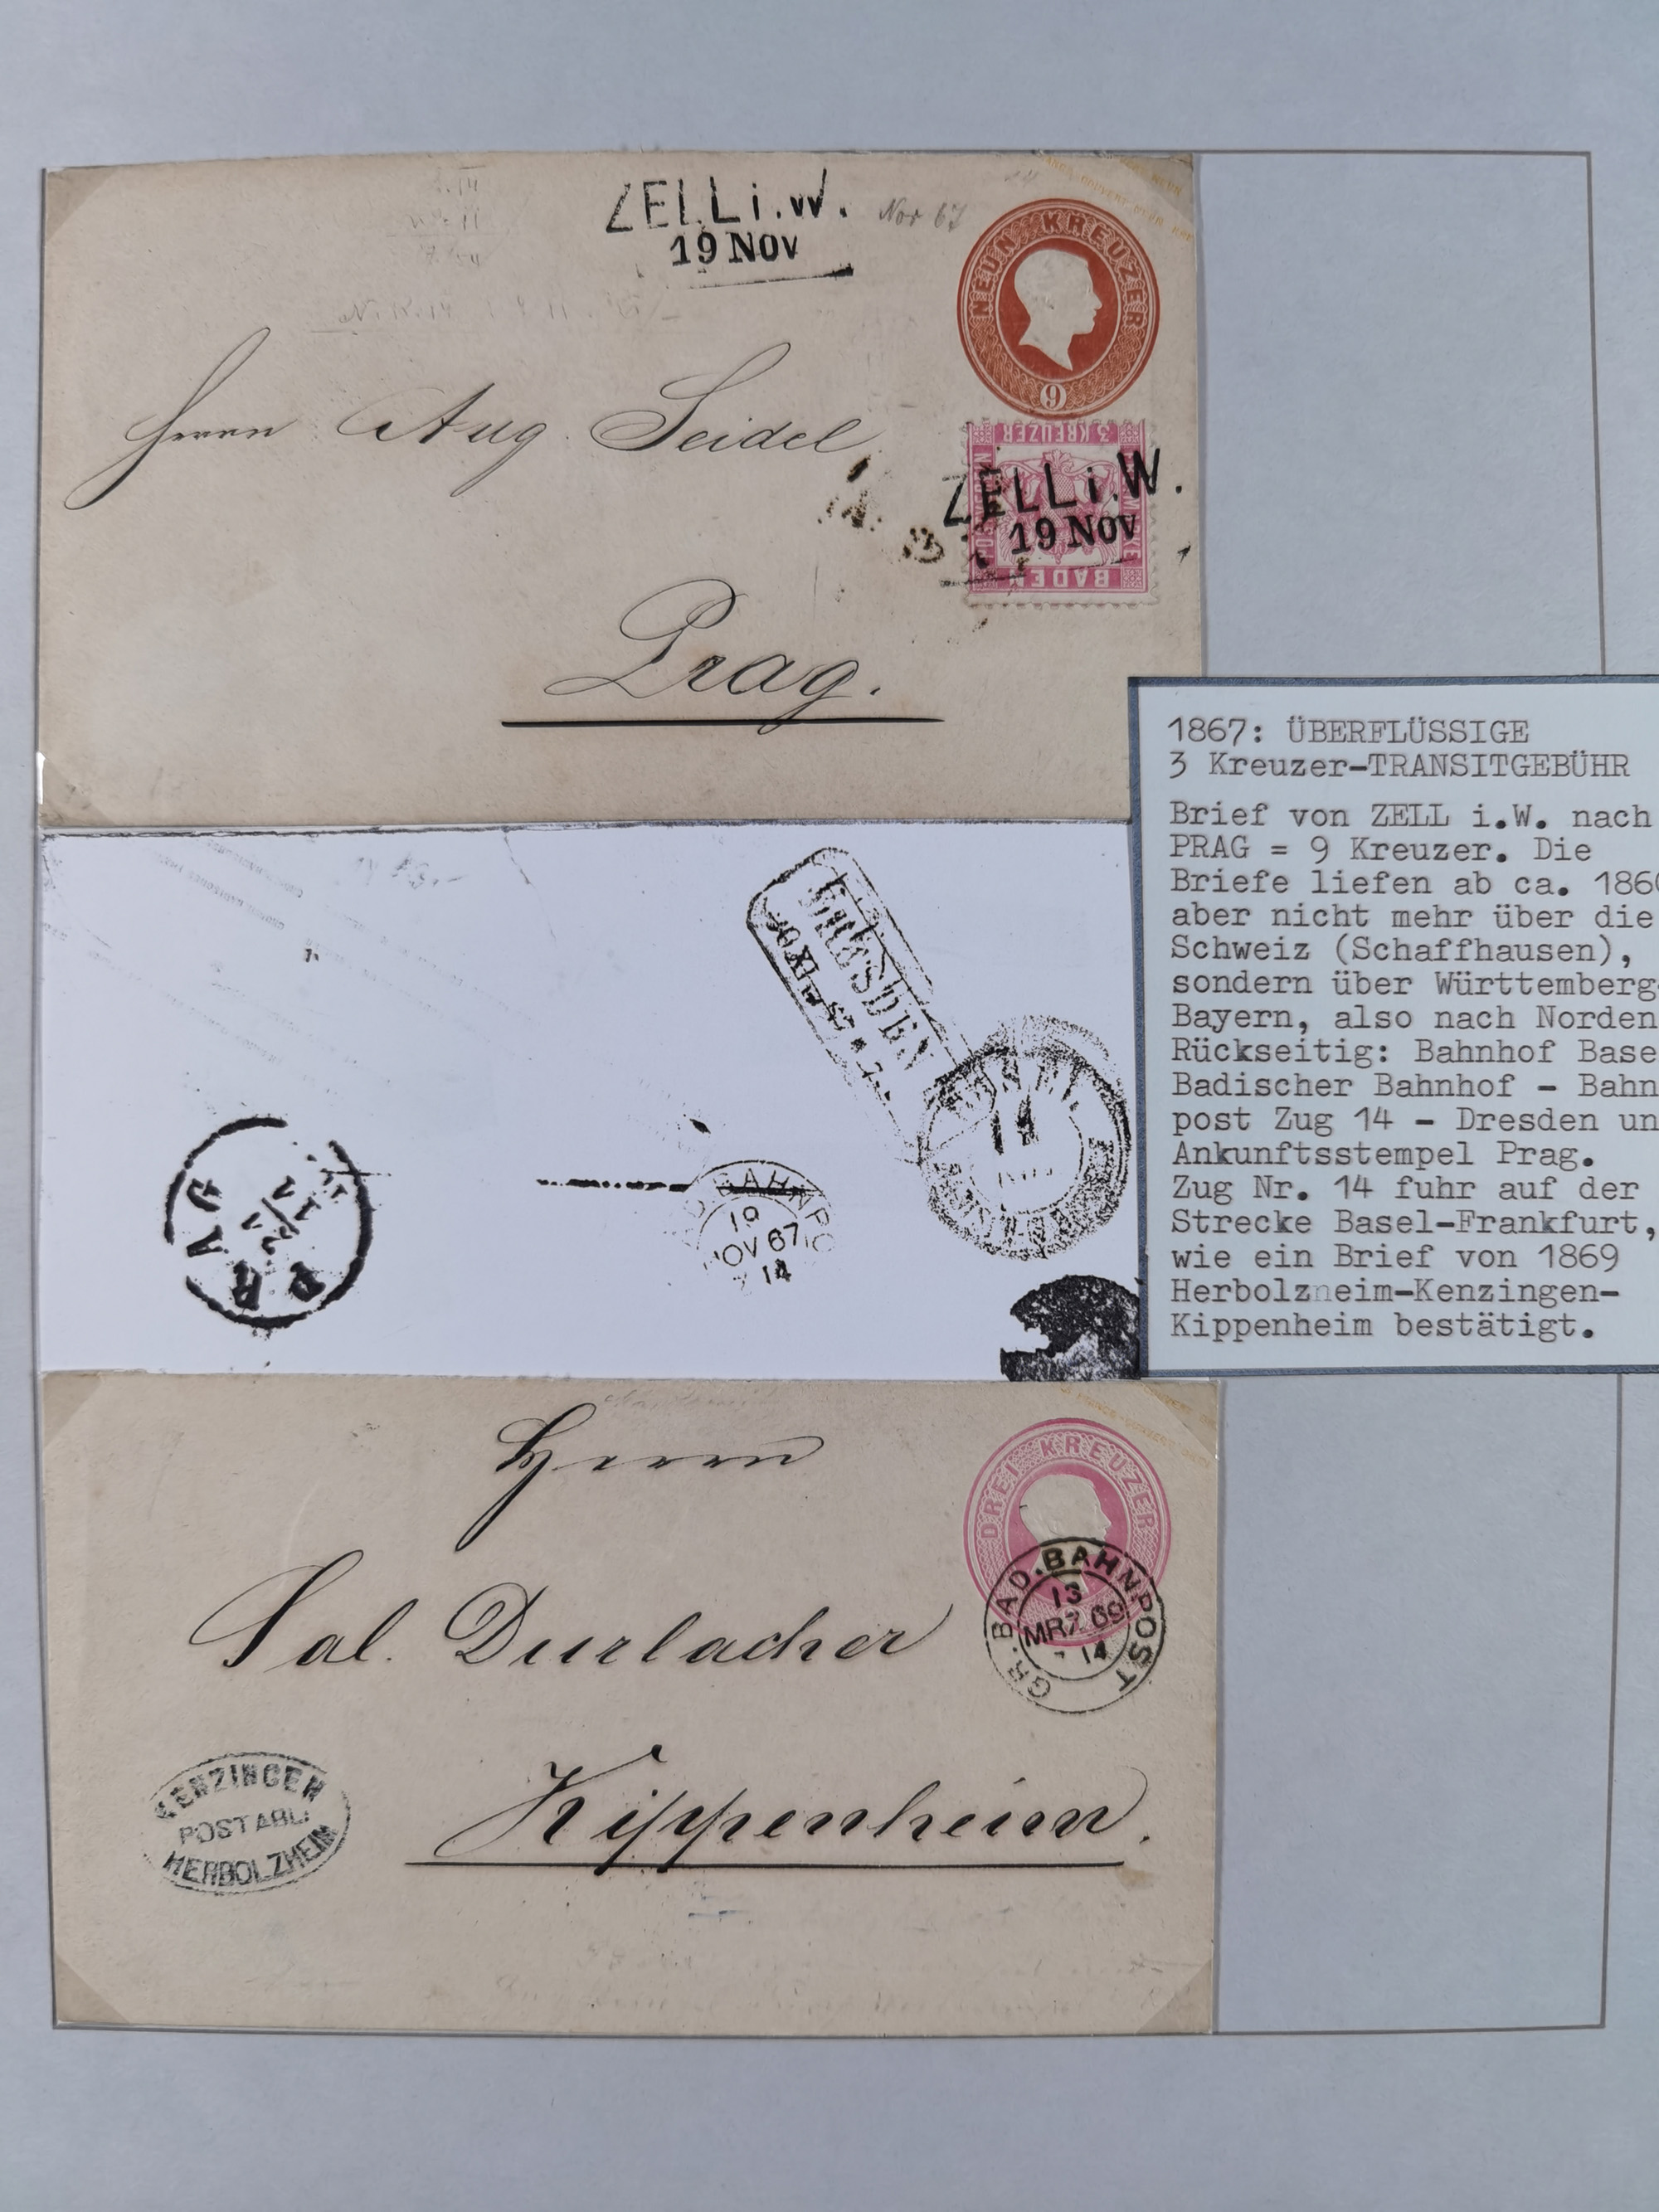 ZELL i. W.
19 NOV
Nov 67
NEUN KREUZER
9
Herrn Aug. Seidel
3 KREUZER
BADEN
ZELL i. W.
19 NOV
Prag.
1867: ÜBERFLÜSSIGE
3 Kreuzer-TRANSITGEBÜHR
Brief von ZELL i.W. nach
PRAG = 9 Kreuzer. Die
Briefe liefen ab ca. 186
aber nicht mehr über die
Schweiz (Schaffhausen),
sondern über Württemberg-
Bayern, also nach Norden
Rückseitig: Bahnhof Base
Badischer Bahnhof - Bahn
post Zug 14 - Dresden un
Ankunftsstempel Prag.
Zug Nr. 14 fuhr auf der
Strecke Basel-Frankfurt,
wie ein Brief von 1869
Herbolzheim-Kenzingen-
Kippenheim bestätigt.
DRESDEN
PRAG
BAHNPO
19
NOV 67
14
Herrn
DREI KREUZER
Sal. Durlacher
GR. BAD. BAHNPOST
13
MRZ 69
14
KENZINGEN
POSTABL.
HERBOLZHEIM
Kippenheim.